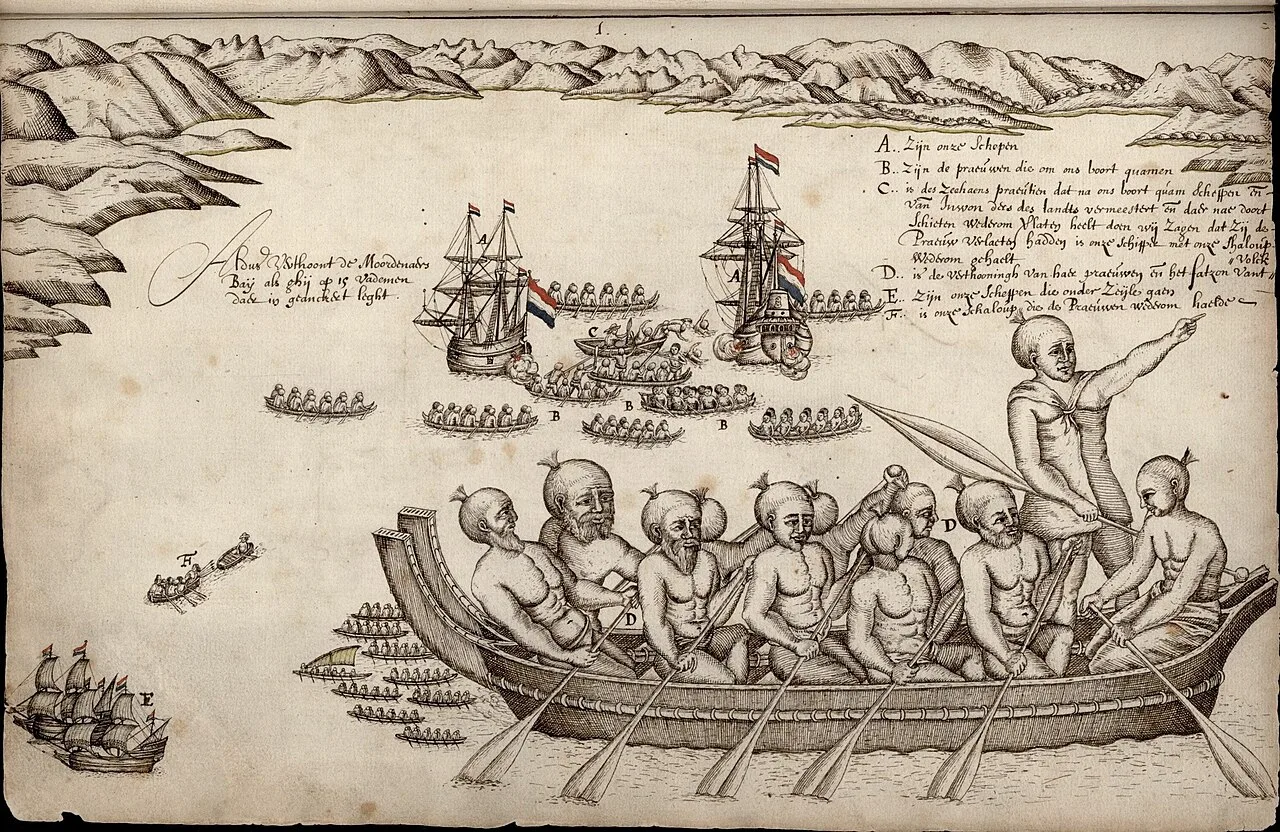 1.
A.. Zijn onze Schepen
B.. Zijn de praeuwen die om ons boort quamen
C.. is des Zeehaens praeutien dat na ons boort quam Scheppen en
van Inwon ders des landts vermeestert en daer nae door
Schieten wederom Verlaten heeft doen wij Zagen dat Zij de
Praeuw Verlaeten hadden is onze Schipper met onze Shaloup
Wederom gehaelt
D.. is de Verthooningh van haer praeuwen en het fatzon vant Volck
E.. Zijn onze Scheppen die onder Zeijle gaen
F.. is onze Schaloup die de Praeuwen wederom haelde
Aldus Verthoont de Moordenaers
Baij als ghij op 15 vademen
daer in geanckert leght
A
A
B
C
B
B
B
D
D
F
E